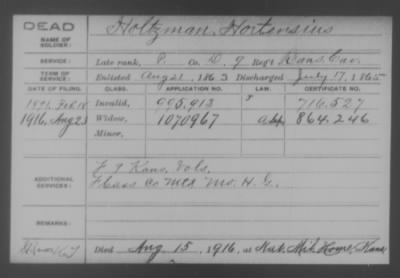 DEAD
NAME OF SOLDIER:
Holtzman, Hortensius
SERVICE:
Late rank, P. Co. D, 9 Reg't Kans. Cav.
TERM OF SERVICE:
Enlisted Aug 21, 1863 Discharged July 17, 1865
DATE OF FILING. CLASS. APPLICATION NO. LAW. CERTIFICATE NO.
1891, Feb. 18 Invalid, 995,913 716,527
1916, Aug 23 Widow, 1070967 864,246
Minor,
ADDITIONAL SERVICES:
F 9 Kans. Vols.
Cass Co Mo. H. G.
REMARKS:
Died Aug 15, 1916, at Nat. Mil. Home, Kans